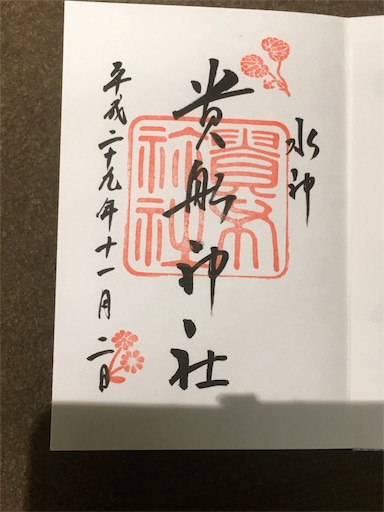 水神
貴船神社
平成二十九年十一月二日